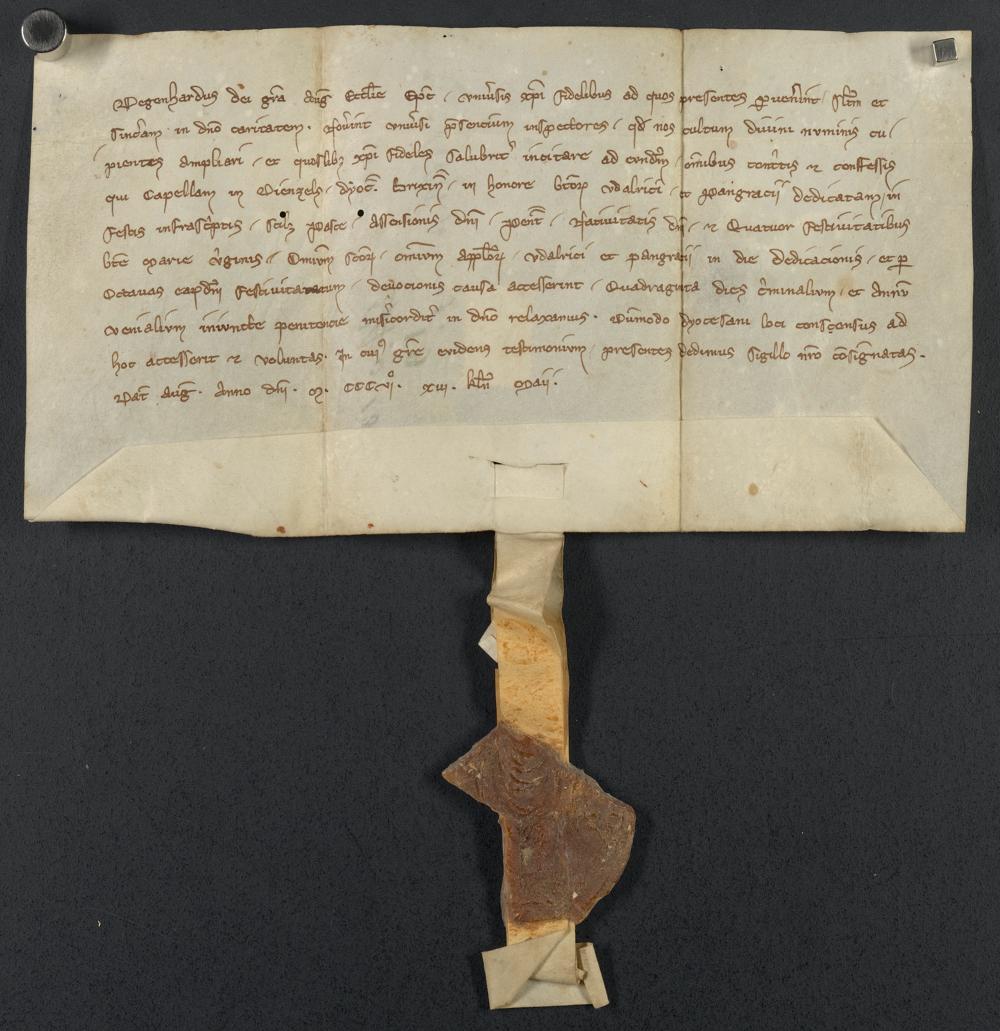 Degenhardus dei gra aug Ecclie Epc / vniuersis xpi fidelibus ad quos presentes peruenerint / Sltm et
sinceram in dno caritatem . Nouerint vniuersi presencium inspectores / qd nos cultum diuini numinis cu /
pientes ampliari / et quoslibz xpi fideles salubrit incitare ad eundm / omibus contritis et confessis
qui Capellam in / dyoc Brixin / in honore btorum vdalrici / et Pangracii dedicatam / in
festis infrascriptis / scilz Pasce / Ascensionis dni / Pent / Natiuitatis dni / et Quatuor festiuitatibus
bte Marie virginis / Omnium scorum / omnium applorum / vdalrici et pangracii in die dedicacionis / et per
Octauas earundm festiuitatatum / deuocionis causa accesserint / Quadraginta dies criminalium / et Annum
venialium iniuncte penitencie misericordit in dno relaxamus . Dummodo dyocesani loci consensus ad
hoc accesserit et voluntas . In cuius gre euidens testimonium / presentes dedimus sigillo nro consignatas .
Dat aug . Anno dni . M . CCC VI° . XIII . kln Maii .